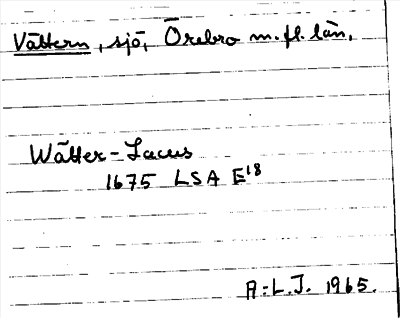 Vättern, sjö, Örebro m. fl. län.
Wätter-Lacus
1675 LSA E18
A:L.J. 1965.